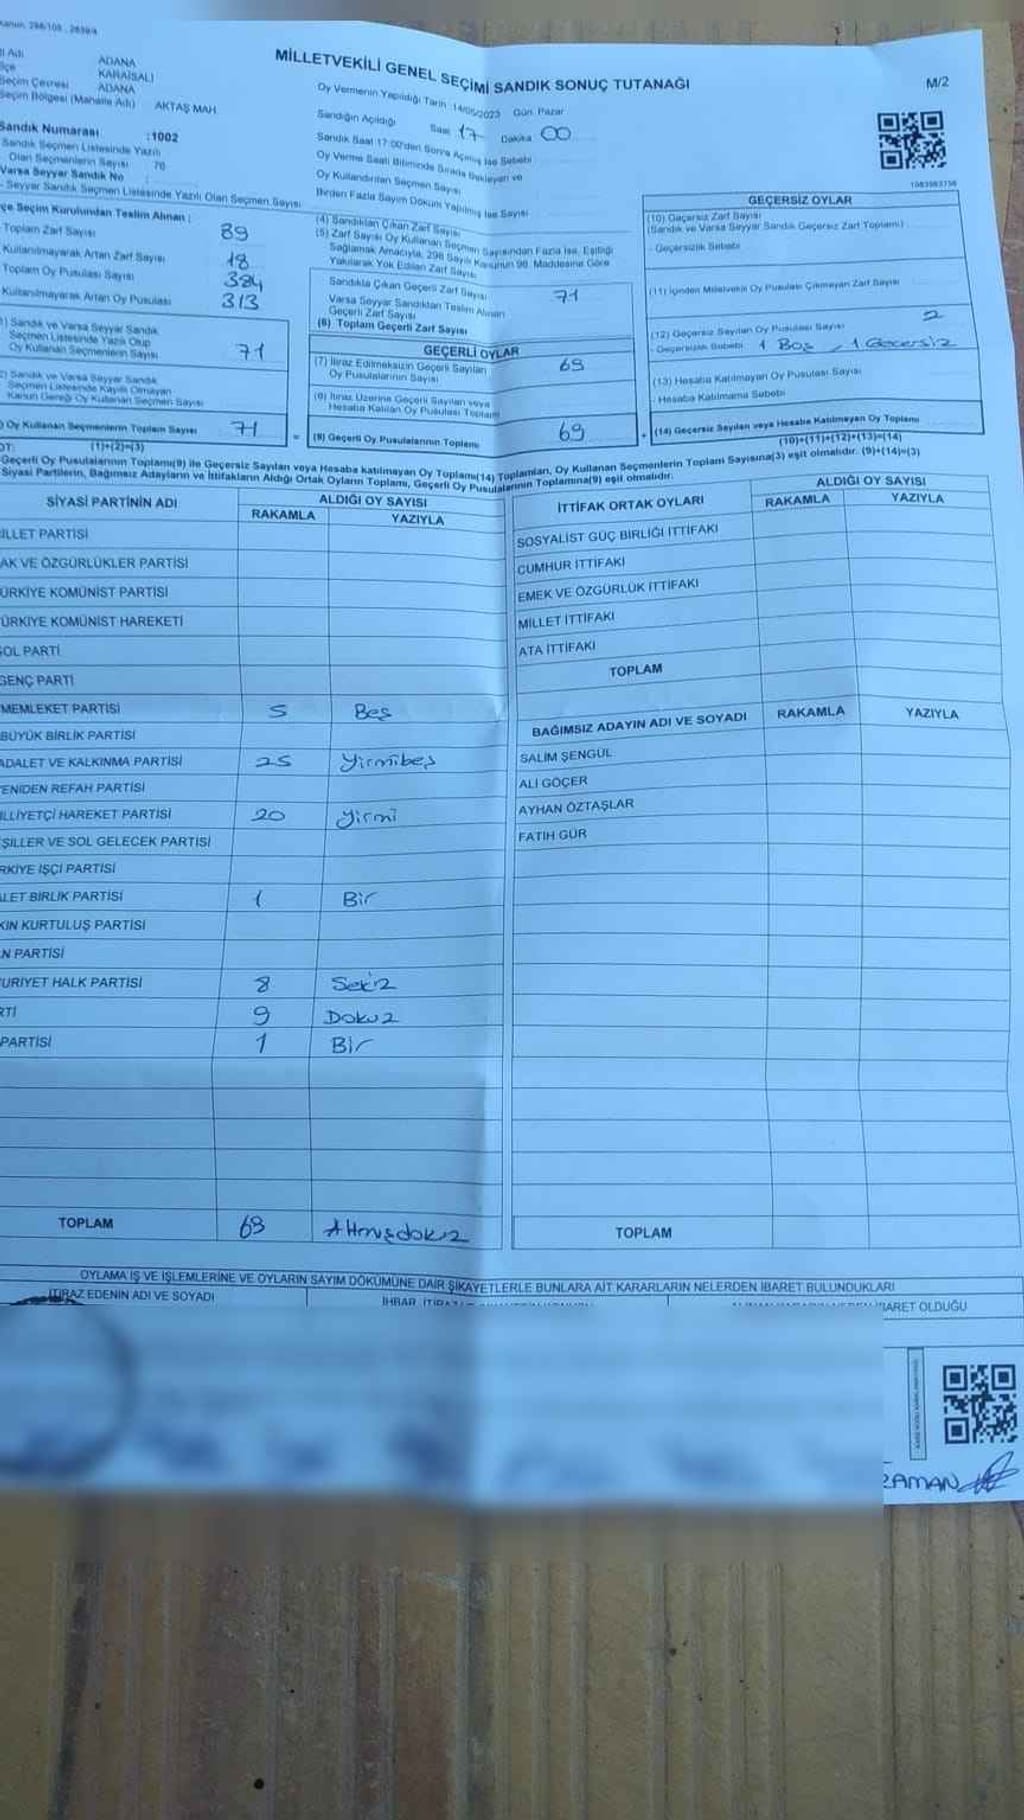 Kanun, 298/105, 2839/4
İl Adı ADANA
İlçe KARAİSALI
Seçim Çevresi ADANA
Seçim Bölgesi (Mahalle Adı) AKTAŞ MAH.
Sandık Numarası :1002
Sandık Seçmen Listesinde Yazılı
Olan Seçmenlerin Sayısı
Varsa Seyyar Sandık No :
- Seyyar Sandık Seçmen Listesinde Yazılı Olan Seçmen Sayısı
MİLLETVEKİLİ GENEL SEÇİMİ SANDIK SONUÇ TUTANAĞI
M/2
Oy Vermenin Yapıldığı Tarih :14/05/2023 Gün: Pazar
Sandığın Açıldığı Saat 17 Dakika 00
Sandık Saat 17:00'den Sonra Açılmış İse Sebebi
Oy Verme Saati Bitiminde Sırada Bekleyen ve
Oy Kullandırılan Seçmen Sayısı
Birden Fazla Sayım Döküm Yapılmış İse Sayısı
1083983756
çe Seçim Kurulundan Teslim Alınan :
Toplam Zarf Sayısı 89
Kullanılmayarak Artan Zarf Sayısı 18
Toplam Oy Pusulası Sayısı 384
Kullanılmayarak Artan Oy Pusulası 313
1) Sandık ve Varsa Seyyar Sandık
Seçmen Listesinde Yazılı Olup
Oy Kullanan Seçmenlerin Sayısı 71
2) Sandık ve Varsa Seyyar Sandık
Seçmen Listesinde Kayıtlı Olmayan
Kanun Gereği Oy Kullanan Seçmen Sayısı
) Oy Kullanan Seçmenlerin Toplam Sayısı 71
(1)+(2)=(3)
(4) Sandıktan Çıkan Zarf Sayısı
(5) Zarf Sayısı Oy Kullanan Seçmen Sayısından Fazla İse, Eşitliği
Sağlamak Amacıyla, 298 Sayılı Kanunun 98. Maddesine Göre
Yakılarak Yok Edilen Zarf Sayısı
Sandıkta Çıkan Geçerli Zarf Sayısı 71
Varsa Seyyar Sandıktan Teslim Alınan
Geçerli Zarf Sayısı
(6) Toplam Geçerli Zarf Sayısı
GEÇERLİ OYLAR
(7) İtiraz Edilmeksizin Geçerli Sayılan
Oy Pusulalarının Sayısı 69
(8) İtiraz Üzerine Geçerli Sayılan veya
Hesaba Katılan Oy Pusulası Toplamı
= (9) Geçerli Oy Pusulalarının Toplamı 69
GEÇERSİZ OYLAR
(10) Geçersiz Zarf Sayısı
(Sandık ve Varsa Seyyar Sandık Geçersiz Zarf Toplamı)
- Geçersizlik Sebebi
(11) İçinden Milletvekili Oy Pusulası Çıkmayan Zarf Sayısı
2
(12) Geçersiz Sayılan Oy Pusulası Sayısı
- Geçersizlik Sebebi 1 Boş , 1 Geçersiz
(13) Hesaba Katılmayan Oy Pusulası Sayısı
- Hesaba Katılmama Sebebi
+ (14) Geçersiz Sayılan veya Hesaba Katılmayan Oy Toplamı
(10)+(11)+(12)+(13)=(14)
OT:
Geçerli Oy Pusulalarının Toplamı(9) ile Geçersiz Sayılan veya Hesaba katılmayan Oy Toplamı(14) Toplamları, Oy Kullanan Seçmenlerin Toplam Sayısına(3) eşit olmalıdır. (9)+(14)=(3)
Siyasi Partilerin, Bağımsız Adayların ve İttifakların Aldığı Ortak Oyların Toplamı, Geçerli Oy Pusulalarının Toplamına(9) eşit olmalıdır.
SİYASİ PARTİNİN ADI ALDIĞI OY SAYISI
RAKAMLA YAZIYLA
İLLET PARTİSİ
AK VE ÖZGÜRLÜKLER PARTİSİ
ÜRKİYE KOMÜNİST PARTİSİ
ÜRKİYE KOMÜNİST HAREKETİ
SOL PARTİ
GENÇ PARTİ
MEMLEKET PARTİSİ 5 Beş
BÜYÜK BİRLİK PARTİSİ
ADALET VE KALKINMA PARTİSİ 25 Yirmibeş
YENİDEN REFAH PARTİSİ
İLLİYETÇİ HAREKET PARTİSİ 20 Yirmi
ŞİLLER VE SOL GELECEK PARTİSİ
RKİYE İŞÇİ PARTİSİ
LET BİRLİK PARTİSİ 1 Bir
KIN KURTULUŞ PARTİSİ
N PARTİSİ
URİYET HALK PARTİSİ 8 Sekiz
RTİ 9 Dokuz
PARTİSİ 1 Bir
TOPLAM 69 Altmışdokuz
İTTİFAK ORTAK OYLARI ALDIĞI OY SAYISI
RAKAMLA YAZIYLA
SOSYALİST GÜÇ BİRLİĞİ İTTİFAKI
CUMHUR İTTİFAKI
EMEK VE ÖZGÜRLÜK İTTİFAKI
MİLLET İTTİFAKI
ATA İTTİFAKI
TOPLAM
BAĞIMSIZ ADAYIN ADI VE SOYADI RAKAMLA YAZIYLA
SALİM ŞENGÜL
ALİ GÖÇER
AYHAN ÖZTAŞLAR
FATİH GÜR
TOPLAM
OYLAMA İŞ VE İŞLEMLERİNE VE OYLARIN SAYIM DÖKÜMÜNE DAİR ŞİKAYETLERLE BUNLARA AİT KARARLARIN NELERDEN İBARET BULUNDUKLARI
İTİRAZ EDENİN ADI VE SOYADI
İBARET OLDUĞU
RAMAN